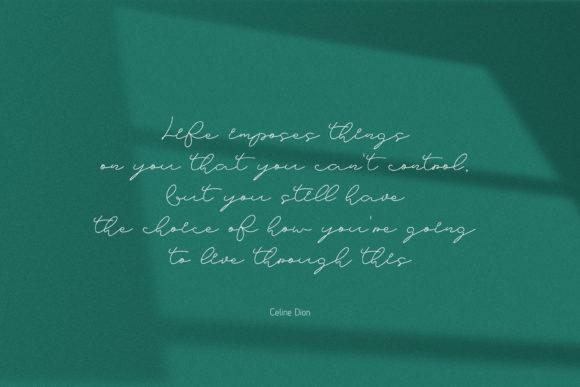 Life imposes things
on you that you can't control,
but you still have
the choice of how you're going
to live through this
Celine Dion